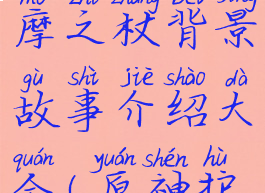 mó zhī zhàng bèi jǐng
摩之杖背景
gù shì jiè shào dà
故事介绍大
quán yuán shén hù
全(原神护